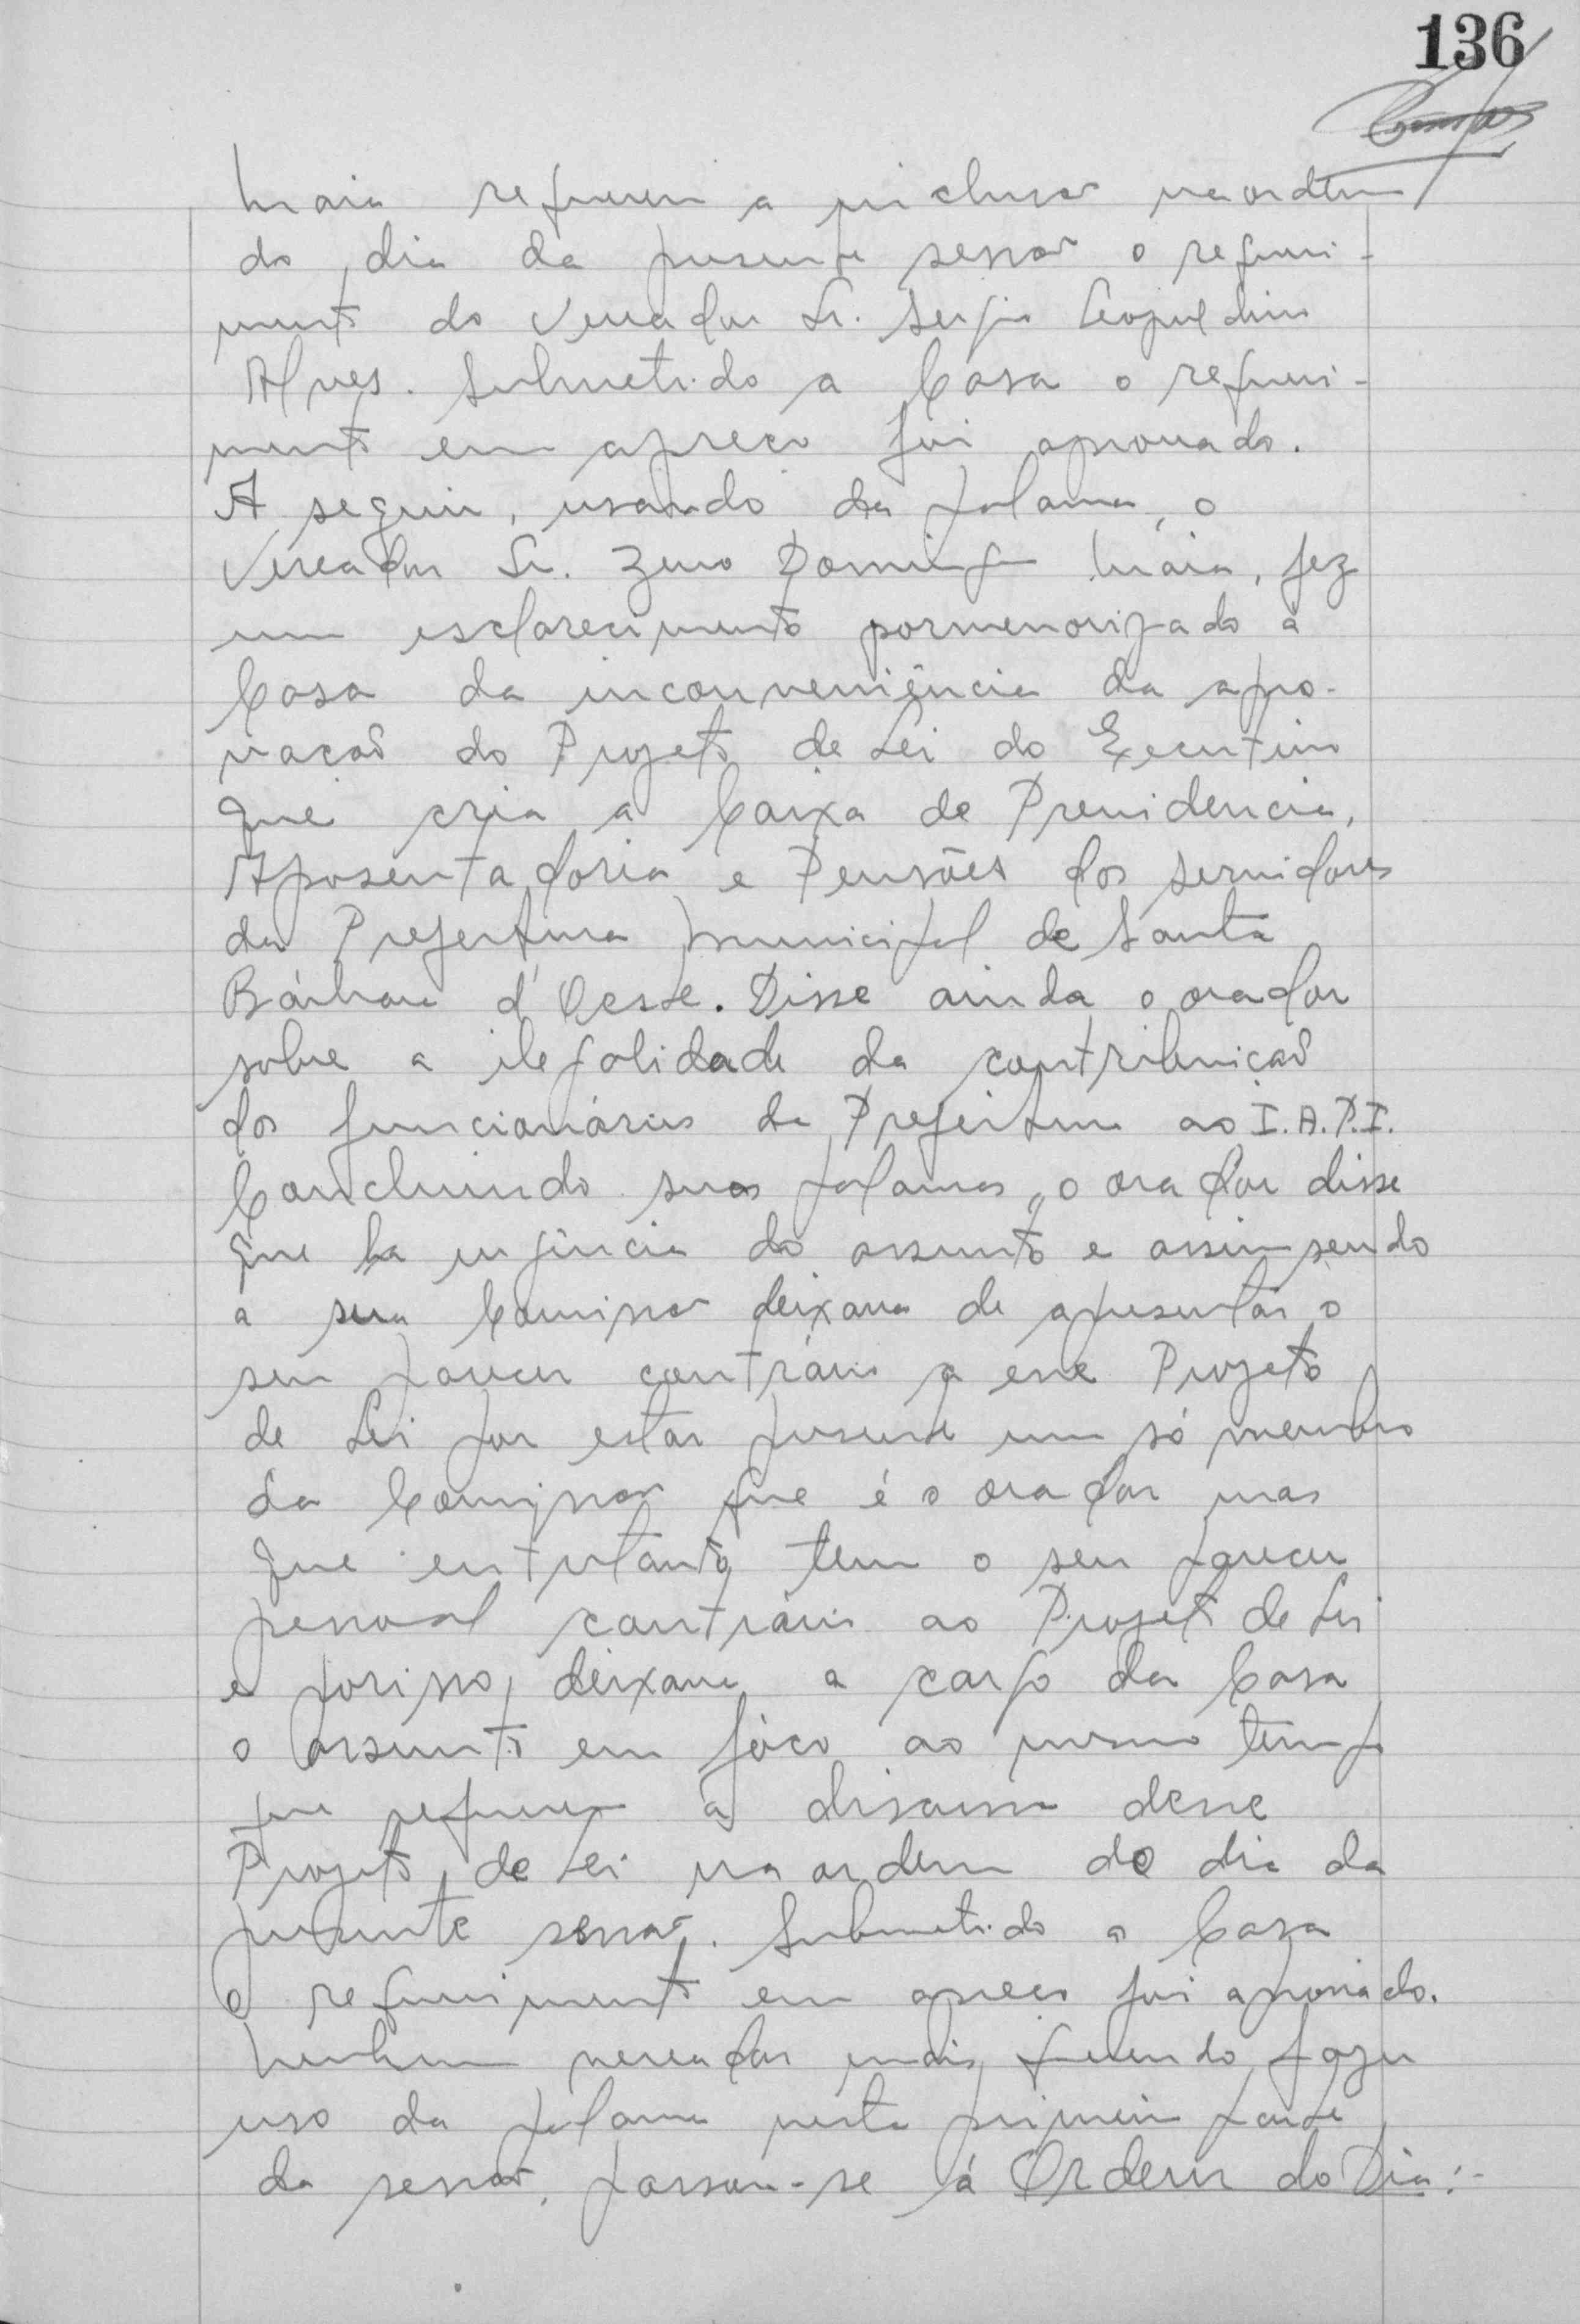 136
Maia requereu a inclusão na ordem
do dia da presente sessão o requeri-
mento do Vereador Sr. Sergio Leopoldino
Alves. Submetido a Casa o requeri-
mento em apreço foi aprovado.
A seguir, usando da palavra, o
Vereador Sr. Zeno Domingos Maia, fez
um esclarecimento pormenorizado à
Casa da inconveniência da apro-
vação do Projeto de Lei do Executivo
que cria a Caixa de Previdencia,
Aposentadoria e Pensões dos servidores
da Prefeitura Municipal de Santa
Bárbara d'Oeste. Disse ainda o orador
sobre a ilegalidade da contribuição
dos funcionários da Prefeitura ao I.A.P.I.
Concluindo suas palavras, o orador disse
que ha urgência do assunto e assim sendo
a sua Comissão deixava de apresentar o
seu parecer contrário a esse Projeto
de Lei por estar presente um só membro
da Comissão que é o orador mas
que entretanto, tem o seu parecer
pessoal contrário ao Projeto de Lei
e por isso, deixava a cargo da Casa
o assunto em fóco ao mesmo tempo
que requereu a discussão desse
Projeto de Lei na ordem do dia da
presente sessão. Submetido a Casa
o requerimento em apreço foi aprovado.
Nenhum vereador mais querendo fazer
uso da palavra nesta primeira parte
da sessão, passou-se á Ordem do Dia:-